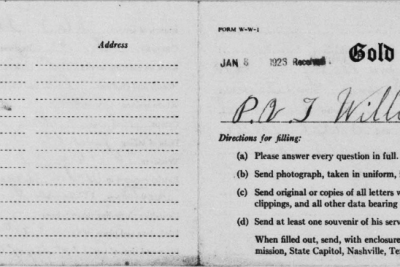 Address
FORM W-W-1
JAN 8 1923 Received.
Gold
P. V. T Willi
Directions for filling:
(a) Please answer every question in full.
(b) Send photograph, taken in uniform,
(c) Send original or copies of all letters w
clippings, and all other data bearing
(d) Send at least one souvenir of his serv
When filled out, send, with enclosure
mission, State Capitol, Nashville, Te